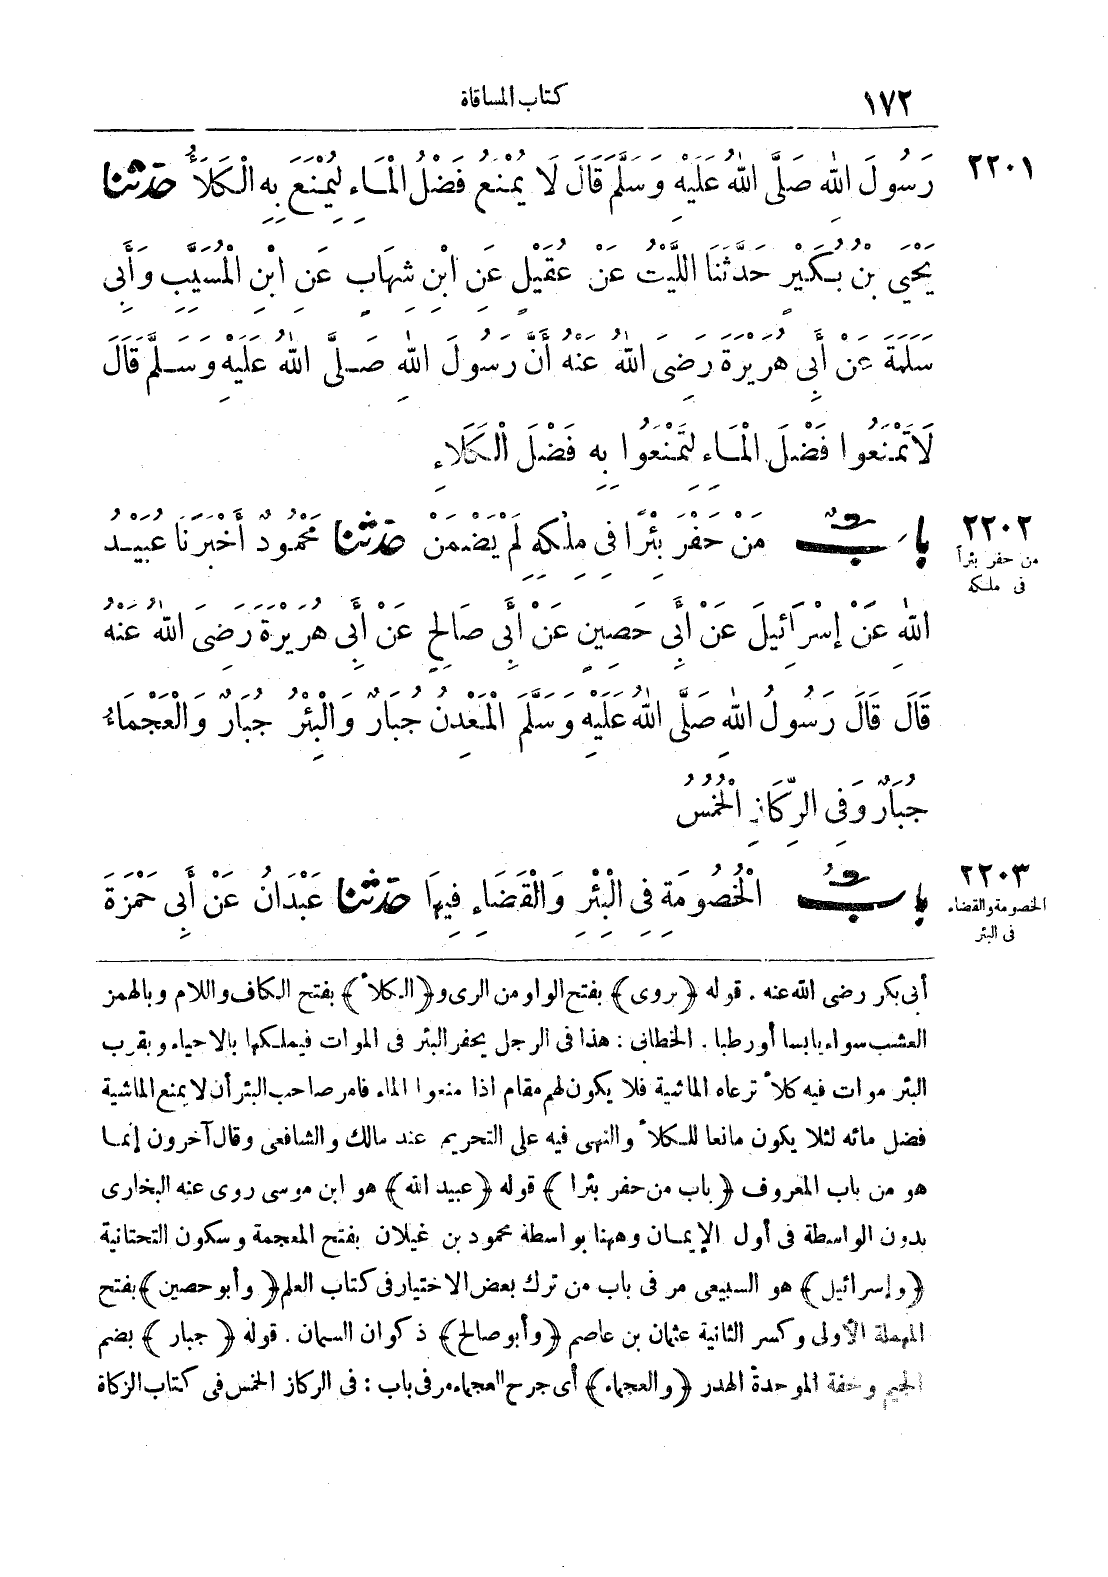 ١٧٢
كتاب المساقاة
٢٢٠١
رَسُولَ اللهِ صَلَّى اللهُ عَلَيْهِ وَسَلَّمَ قَالَ لَا يُمْنَعُ فَضْلُ الْمَاءِ لِيُمْنَعَ بِهِ الْكَلَأُ حدثنا
يَحْيَى بْنُ بُكَيْرٍ حَدَّثَنَا اللَّيْثُ عَنْ عُقَيْلٍ عَنِ ابْنِ شِهَابٍ عَنِ ابْنِ الْمُسَيَّبِ وَأَبِي
سَلَمَةَ عَنْ أَبِي هُرَيْرَةَ رَضِيَ اللهُ عَنْهُ أَنَّ رَسُولَ اللهِ صَلَّى اللهُ عَلَيْهِ وَسَلَّمَ قَالَ
لَا تَمْنَعُوا فَضْلَ الْمَاءِ لِتَمْنَعُوا بِهِ فَضْلَ الْكَلَاءِ
٢٢٠٢
من حفر بئرا
فى ملكه
بابُ مَنْ حَفَرَ بِئْرًا فِي مِلْكِهِ لَمْ يَضْمَنْ حدثنا مَحْمُودٌ أَخْبَرَنَا عُبَيْدُ
اللهِ عَنْ إِسْرَائِيلَ عَنْ أَبِي حَصِينٍ عَنْ أَبِي صَالِحٍ عَنْ أَبِي هُرَيْرَةَ رَضِيَ اللهُ عَنْهُ
قَالَ قَالَ رَسُولُ اللهِ صَلَّى اللهُ عَلَيْهِ وَسَلَّمَ الْمَعْدِنُ جُبَارٌ وَالْبِئْرُ جُبَارٌ وَالْعَجْمَاءُ
جُبَارٌ وَفِي الرِّكَازِ الْخُمُسُ
٢٢٠٣
الخصومة والقضاء
فى البئر
بابُ الْخُصُومَةِ فِي الْبِئْرِ وَالْقَضَاءِ فِيهَا حدثنا عَبْدَانُ عَنْ أَبِي حَمْزَةَ
أبى بكر رضى الله عنه . قوله ﴿يروى﴾ بفتح الواو من الرى و﴿الكلأ﴾ بفتح الكاف واللام وبالهمز
العشب سواء يابسا أو رطبا . الخطابى : هذا فى الرجل يحفر البئر فى الموات فيملكها بالاحياء وبقرب
البئر موات فيه كلأ ترعاه الماشية فلا يكون لهم مقام اذا منعوا الماء فامر صاحب البئر أن لا يمنع الماشية
فضل مائه لئلا يكون مانعا للكلأ والنهى فيه على التحريم عند مالك والشافعى وقال آخرون إنما
هو من باب المعروف ﴿باب من حفر بئرا﴾ قوله ﴿عبيد الله﴾ هو ابن موسى روى عنه البخارى
بدون الواسطة فى أول الإيمان وههنا بواسطة محمود بن غيلان بفتح المعجمة وسكون التحتانية
﴿وإسرائيل﴾ هو السبيعى مر فى باب من ترك بعض الاختيار فى كتاب العلم ﴿وأبو حصين﴾ بفتح
المهملة الأولى وكسر الثانية عثمان بن عاصم ﴿وأبو صالح﴾ ذكوان السمان . قوله ﴿جبار﴾ بضم
الجيم وخفة الموحدة الهدر ﴿والعجماء﴾ أى جرح العجماء مر فى باب : فى الركاز الخمس فى كتاب الزكاة